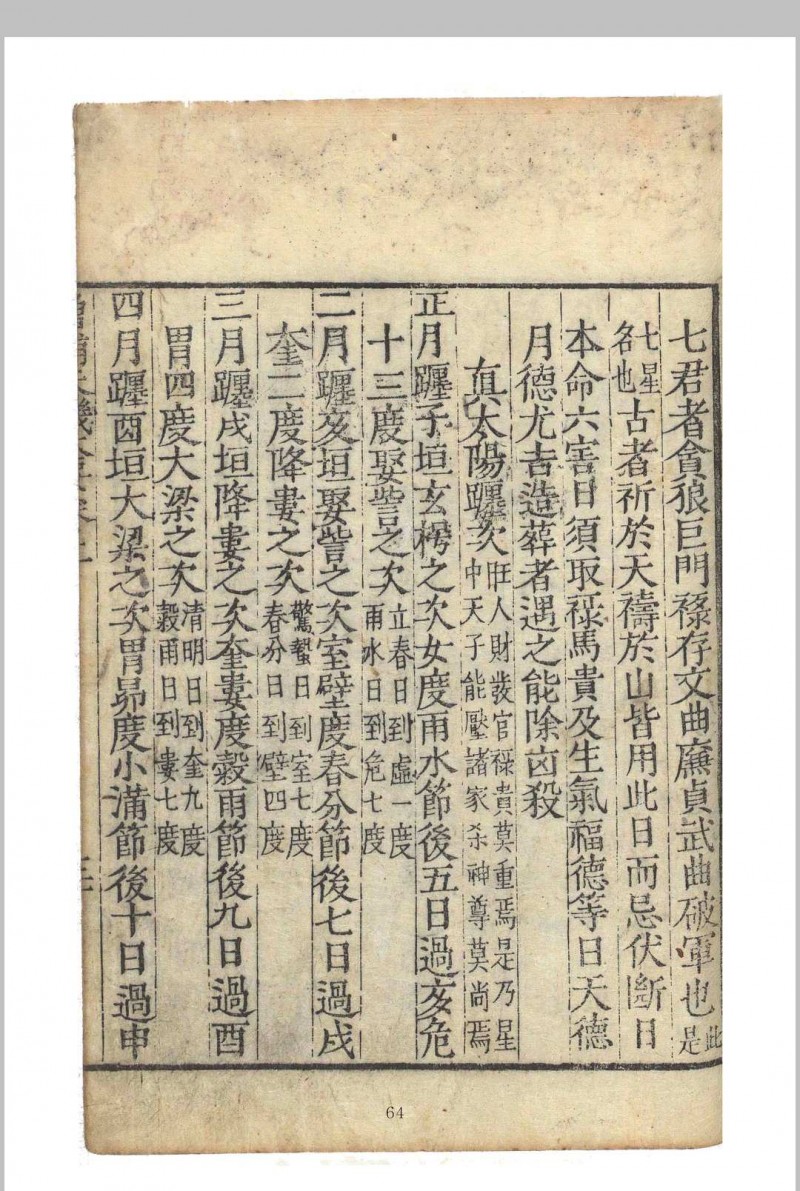 七君者貪狼巨門祿存文曲廉貞武曲破軍也此是
七星名也古者祈於天禱於山皆用此日而忌伏断日
本命六害日須取祿馬貴及生氣福德等日天德
月德尤吉造葬者遇之能除凶殺
真太陽躔次旺人財發官祿貴莫重焉是乃星中天子能壓諸家杀神尊莫尚焉
正月躔子垣玄枵之次女度雨水節後五日過亥危
十三度娶訾之次立春日到虛一度雨水日到危七度
二月躔亥垣娶訾之次室壁度春分節後七日過戌
奎二度降婁之次驚蟄日到室七度春分日到壁四度
三月躔戌垣降婁之次奎婁度穀雨節後九日過酉
胃四度大梁之次清明日到奎九度穀雨日到婁七度
四月躔酉垣大梁之次胃昴度小滿節後十日過申
64